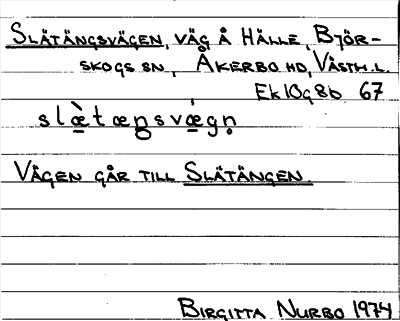 SLÄTÄNGSVÄGEN, VÄG Å HÄLLE, BJÖR-
SKOGS SN, ÅKERBO HD, VÄSTM.L.
Ek 10g8b 67
slæ̀tæŋsvǽgṇ
VÄGEN GÅR TILL SLÄTÄNGEN.
BIRGITTA NURBO 1974